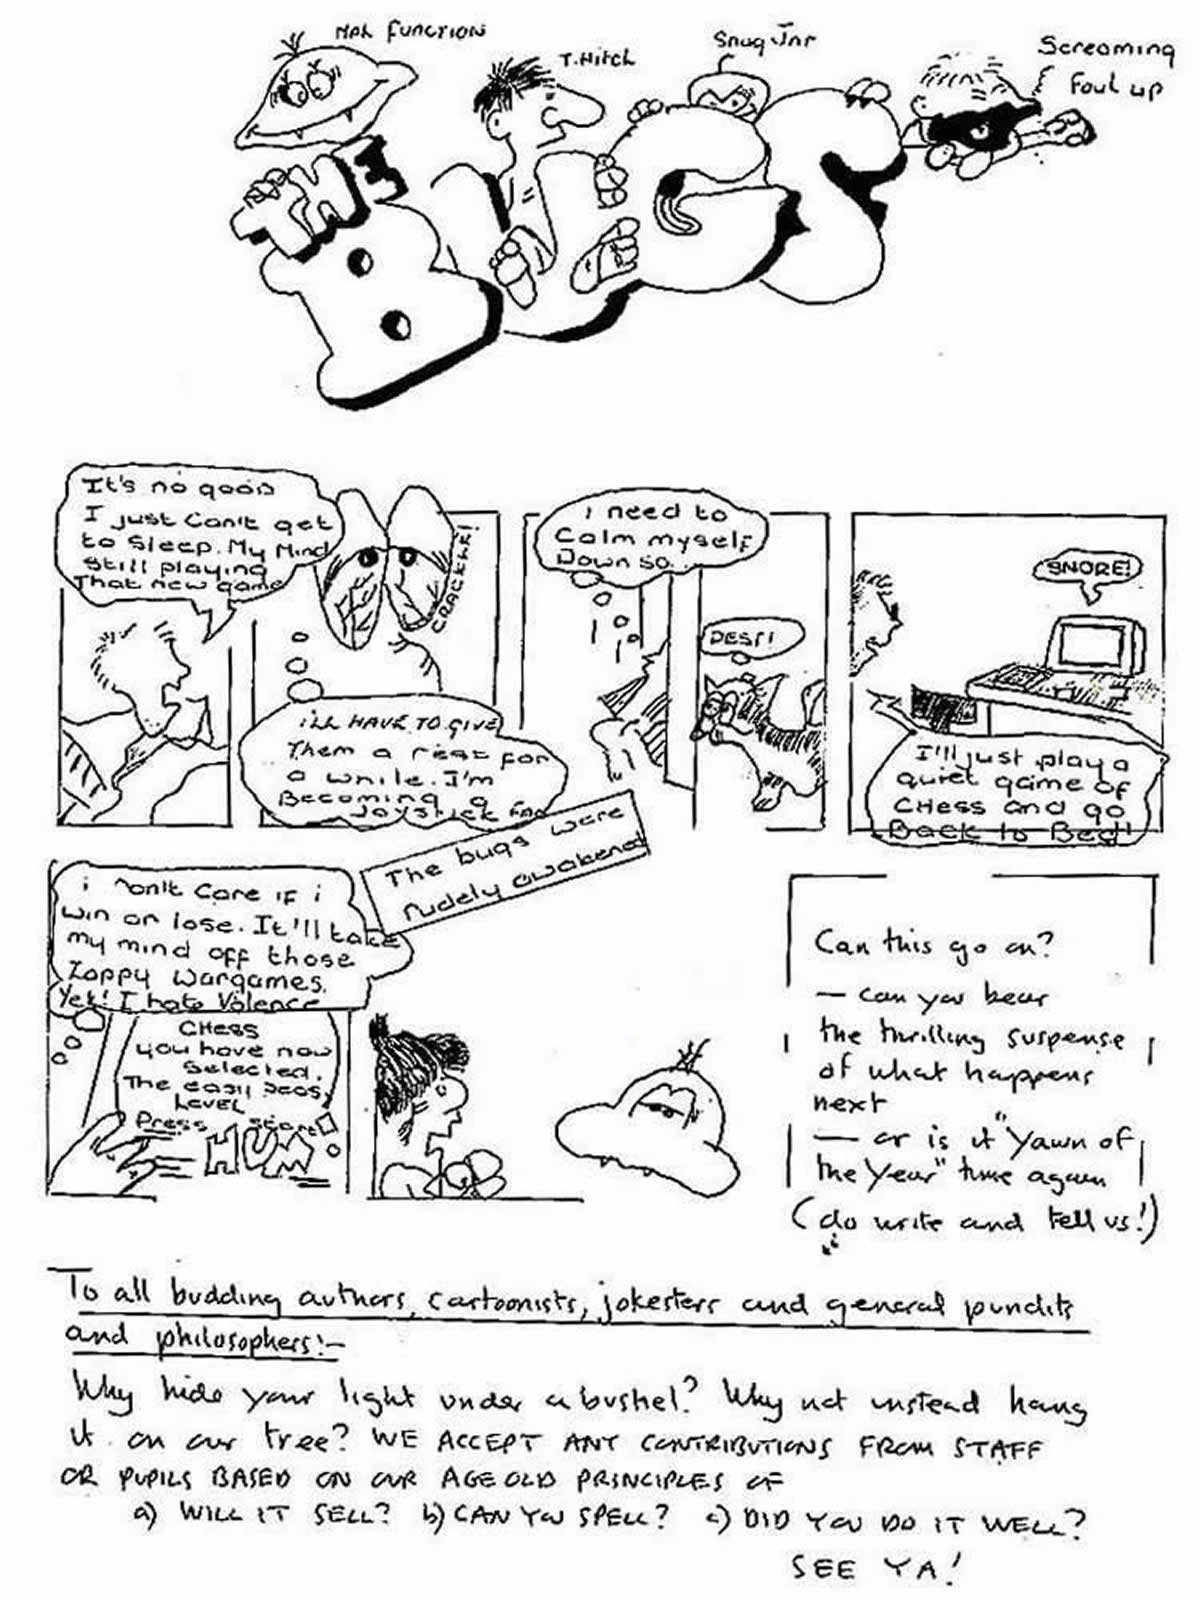 Mal Function
T. Hitch
Snug Jnr
Screaming
Foul up
THE
BUGS
It's no good
I just Can't get
to Sleep. My Mind
Still playing
That new game
CRACKLE!
I'LL HAVE TO GIVE
Them a rest for
a while. I'm
Becoming a
Joystick Fad
i need to
Calm myself
Down so..
PEST!
SNORE!
I'll just play a
quiet game of
CHess and go
Back to Bed!
i Don't Care IF i
win or lose. It'll take
my mind off those
Zappy Wargames.
Yek! I hate Volence
CHess
you have now
Selected.
The easy peasy
LEVEL
Press Start
HUM!
The bugs were
rudely awakened
Can this go on?
— can you bear
the thrilling suspense
of what happens
next
— or is it "Yawn of
the Year" time again
(do write and tell us!)
To all budding authors, cartoonists, jokesters and general pundits
and philosophers:-
Why hide your light under a bushel? Why not instead hang
it on our tree? WE ACCEPT ANY CONTRIBUTIONS FROM STAFF
OR PUPILS BASED ON OUR AGE OLD PRINCIPLES OF
a) WILL IT SELL? b) CAN YOU SPELL? c) DID YOU DO IT WELL?
SEE YA!